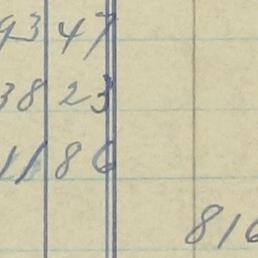 93 47
38 23
11 86
816